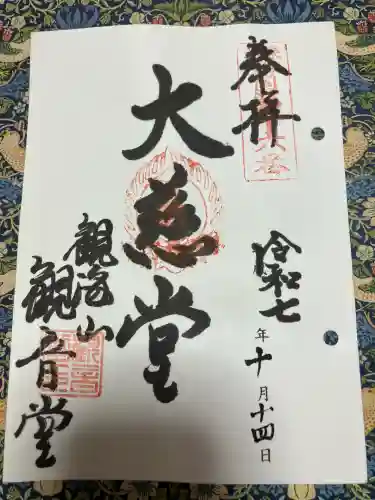 奉拝
令和七年十月十四日
大慈堂
観海山
観音堂